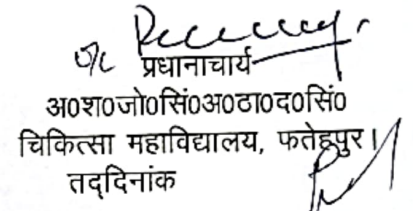 प्रधानाचार्य
अ०श०जो०सिं०अ०ठा०द०सिं०
चिकित्सा महाविद्यालय, फतेहपुर।
तद्दिनांक